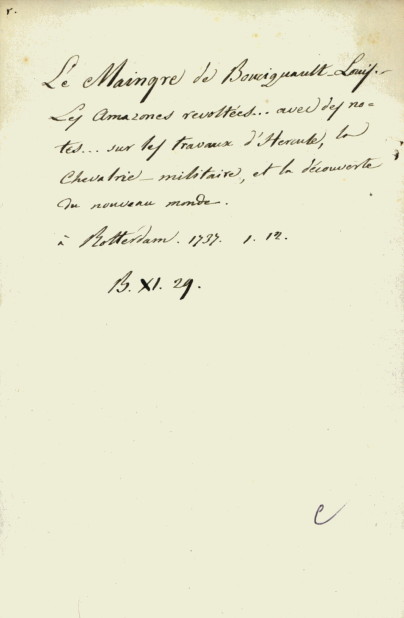 r.
Le Maingre de Bouciquault-Louis.-
Les Amazones revoltées... avec des no-
tes... sur les travaux d'Hercule, la
Chevalrie-militaire, et la découverte
du nouveau monde.
à Rotterdam. 1737. 1. 12.
B. XI. 29.
C